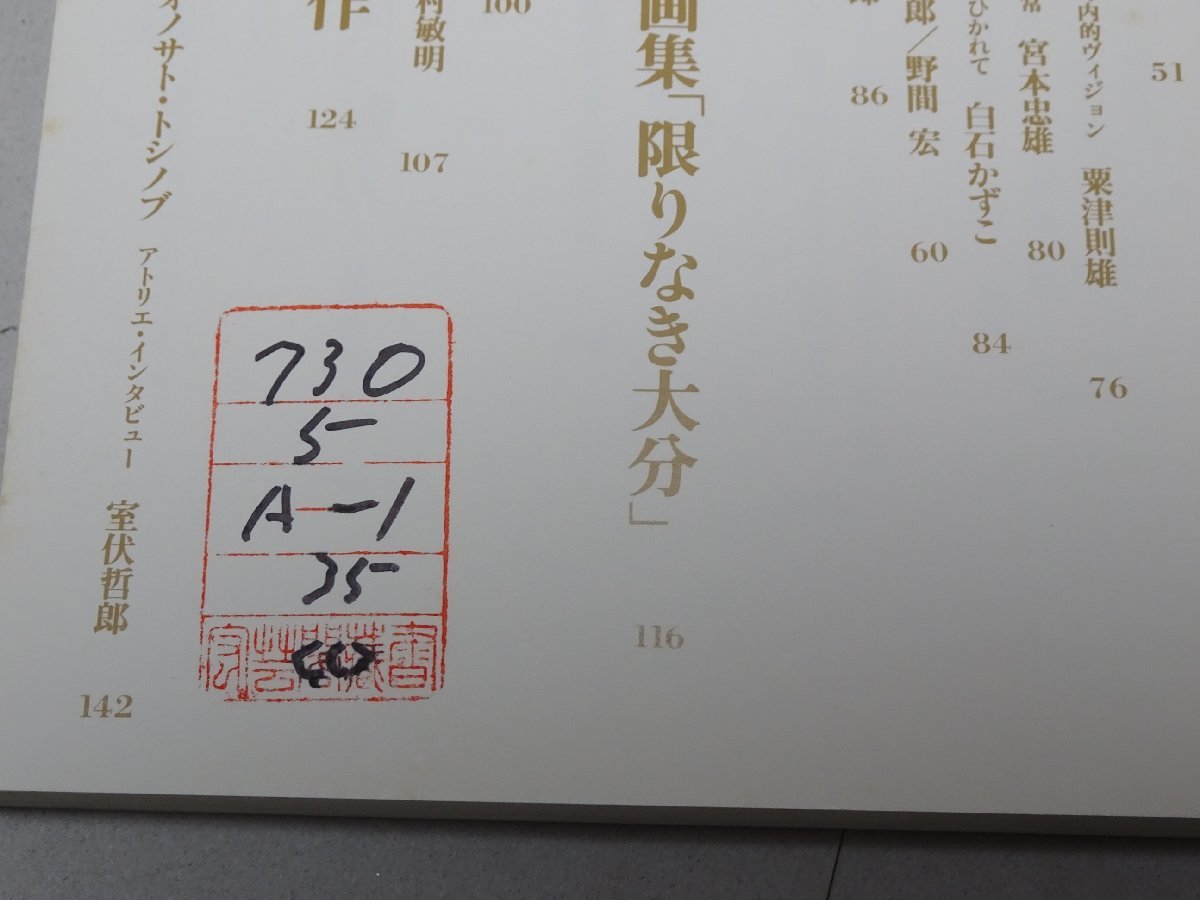 51
内的ヴィジョン 粟津則雄
76
宮本忠雄
80
ひかれて 白石かずこ
84
郎／野間 宏
60
86
画集「限りなき大分」
116
100
村敏明
107
作
124
オノサト・トシノブ アトリエ・インタビュー 室伏哲郎
142
730
5
A-1
35